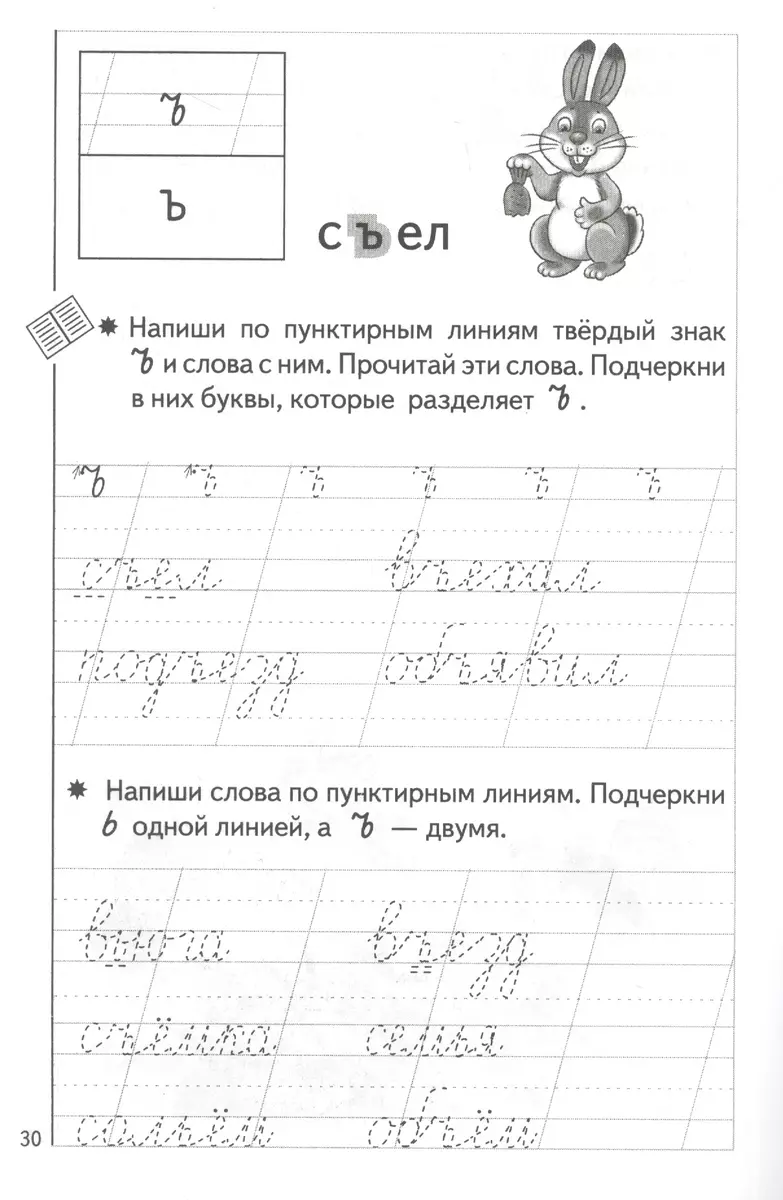 ъ
ъ
съел
Напиши по пунктирным линиям твёрдый знак
ъ и слова с ним. Прочитай эти слова. Подчеркни
в них буквы, которые разделяет ъ .
ъ ъ ъ ъ ъ ъ
съел въехал
подъезд объявил
Напиши слова по пунктирным линиям. Подчеркни
ь одной линией, а ъ — двумя.
вьюга въезд
съёмка семья
объём
30